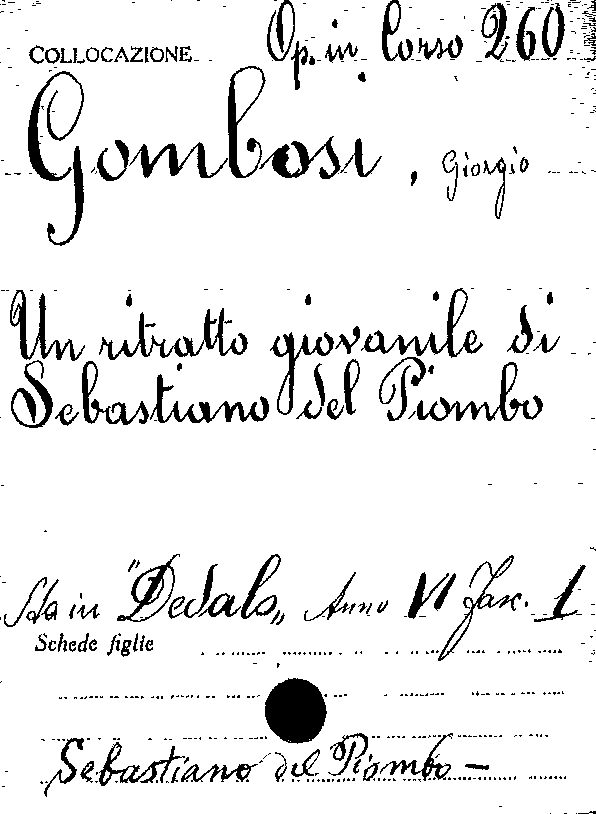 COLLOCAZIONE Op. in Corso 260
Gombosi, Giorgio
Un ritratto giovanile di
Sebastiano del Piombo
Sta in "Dedalo" Anno VI Fasc. 1
Schede figlie
Sebastiano del Piombo —